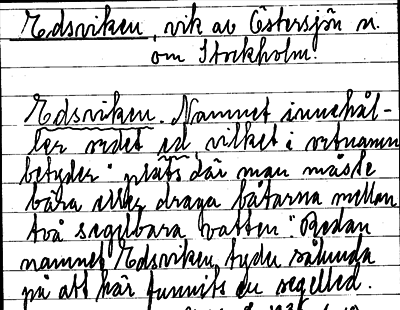 Edsviken, vik av Östersjön n.
om Stockholm.
Edsviken. Namnet innehål-
ler ordet ed vilket i ortnamn
betyder "plats där man måste
bära eller draga båtarna mellan
två segelbara vatten". Redan
namnet Edsviken tyder sålunda
på att här funnits en segelled.